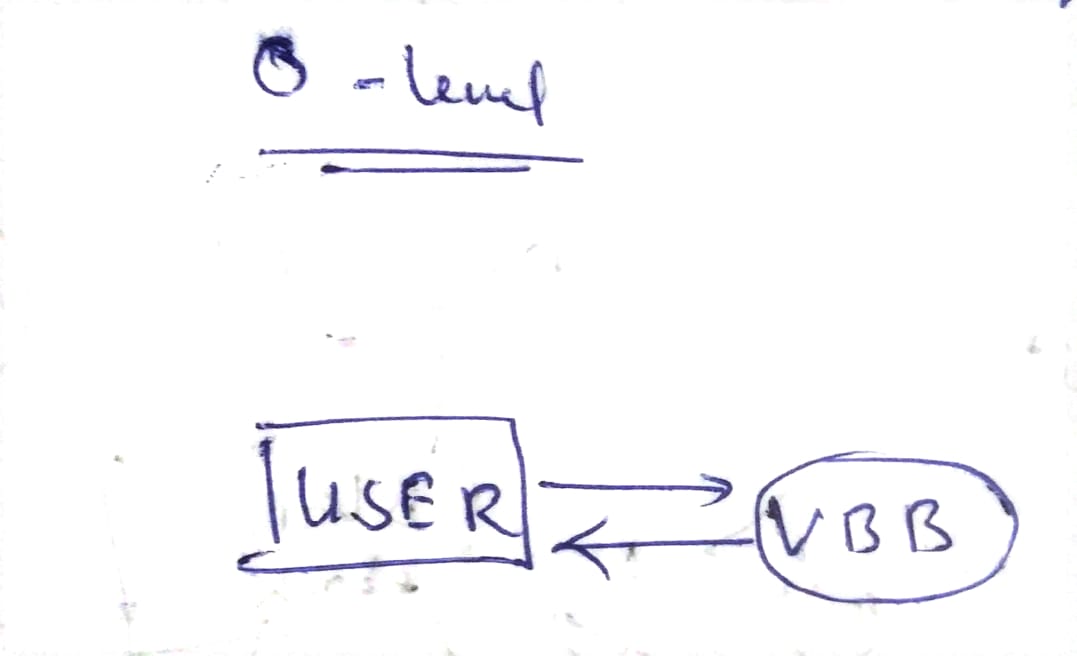 0 - level
USER
VBB